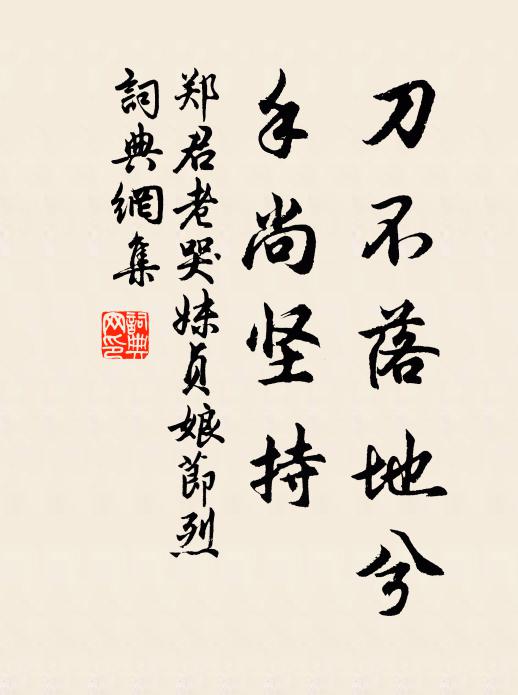 刀不落地兮
手尚坚持
郑君老哭妹贞娘节烈
词典網集
詞典
网印